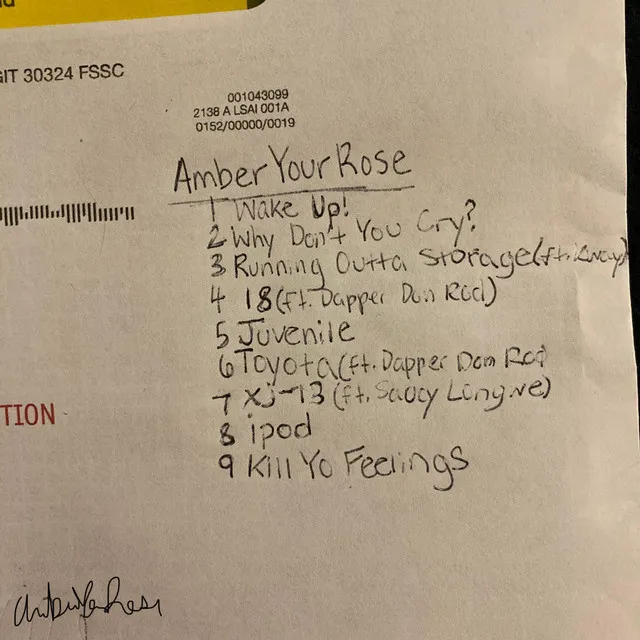 GIT 30324 FSSC
001043099
2138 A LSAI 001A
0152/00000/0019
Amber Your Rose
1 Wake Up!
2 Why Don't You Cry?
3 Running Outta Storage(ft.
4 18(ft. Dapper Dan Rod)
5 Juvenile
6 Toyota(ft. Dapper Dan Rod
7 Xj-13 (ft. Saucy
8 ipod
9 Kill Yo Feelings
TION